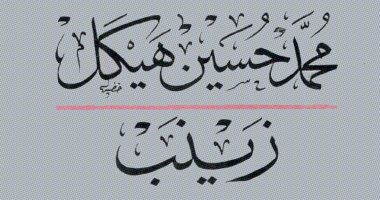 محمّد حسين هيكل
زينب